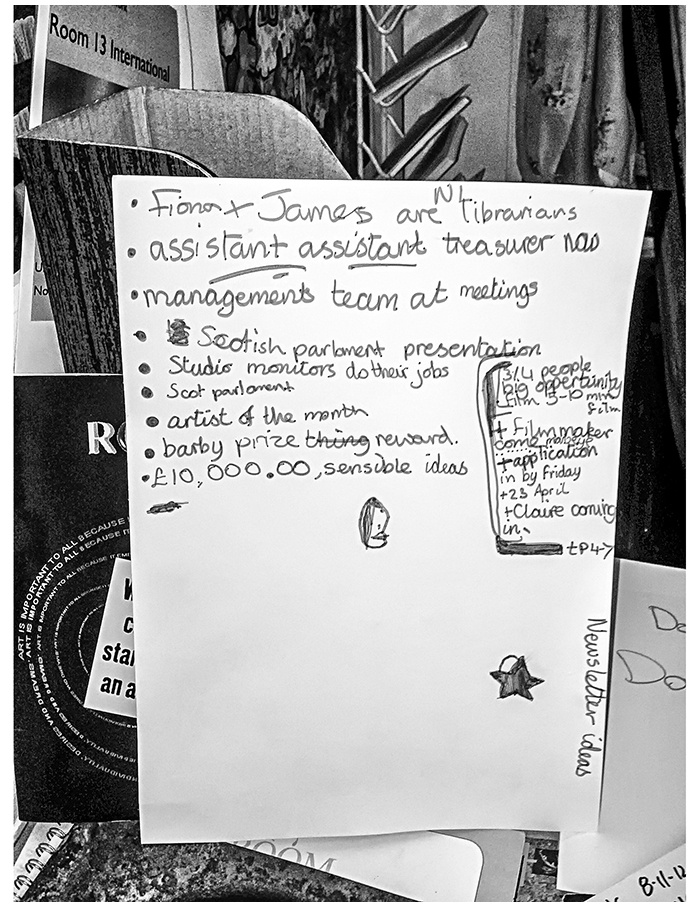 Room 13 International
• Fiona + James are librarians
• assistant assistant treasurer now
• managements team at meetings
• Scotish parloment presentation
• Studio monitors do their jobs
• Scot parloment
• artist of the month
• barby prize thing reward.
• £10,000.00, sensible ideas
3/4 people
big oppertunity
film 5-10 min
film
+ Filmmaker
come
+application
in by Friday
+23 April
+Claire coming
in.
Newsletter ideas
R
ART IS IMPORTANT TO ALL BECAUSE
star
an a
Do
ROOM
8-11-12